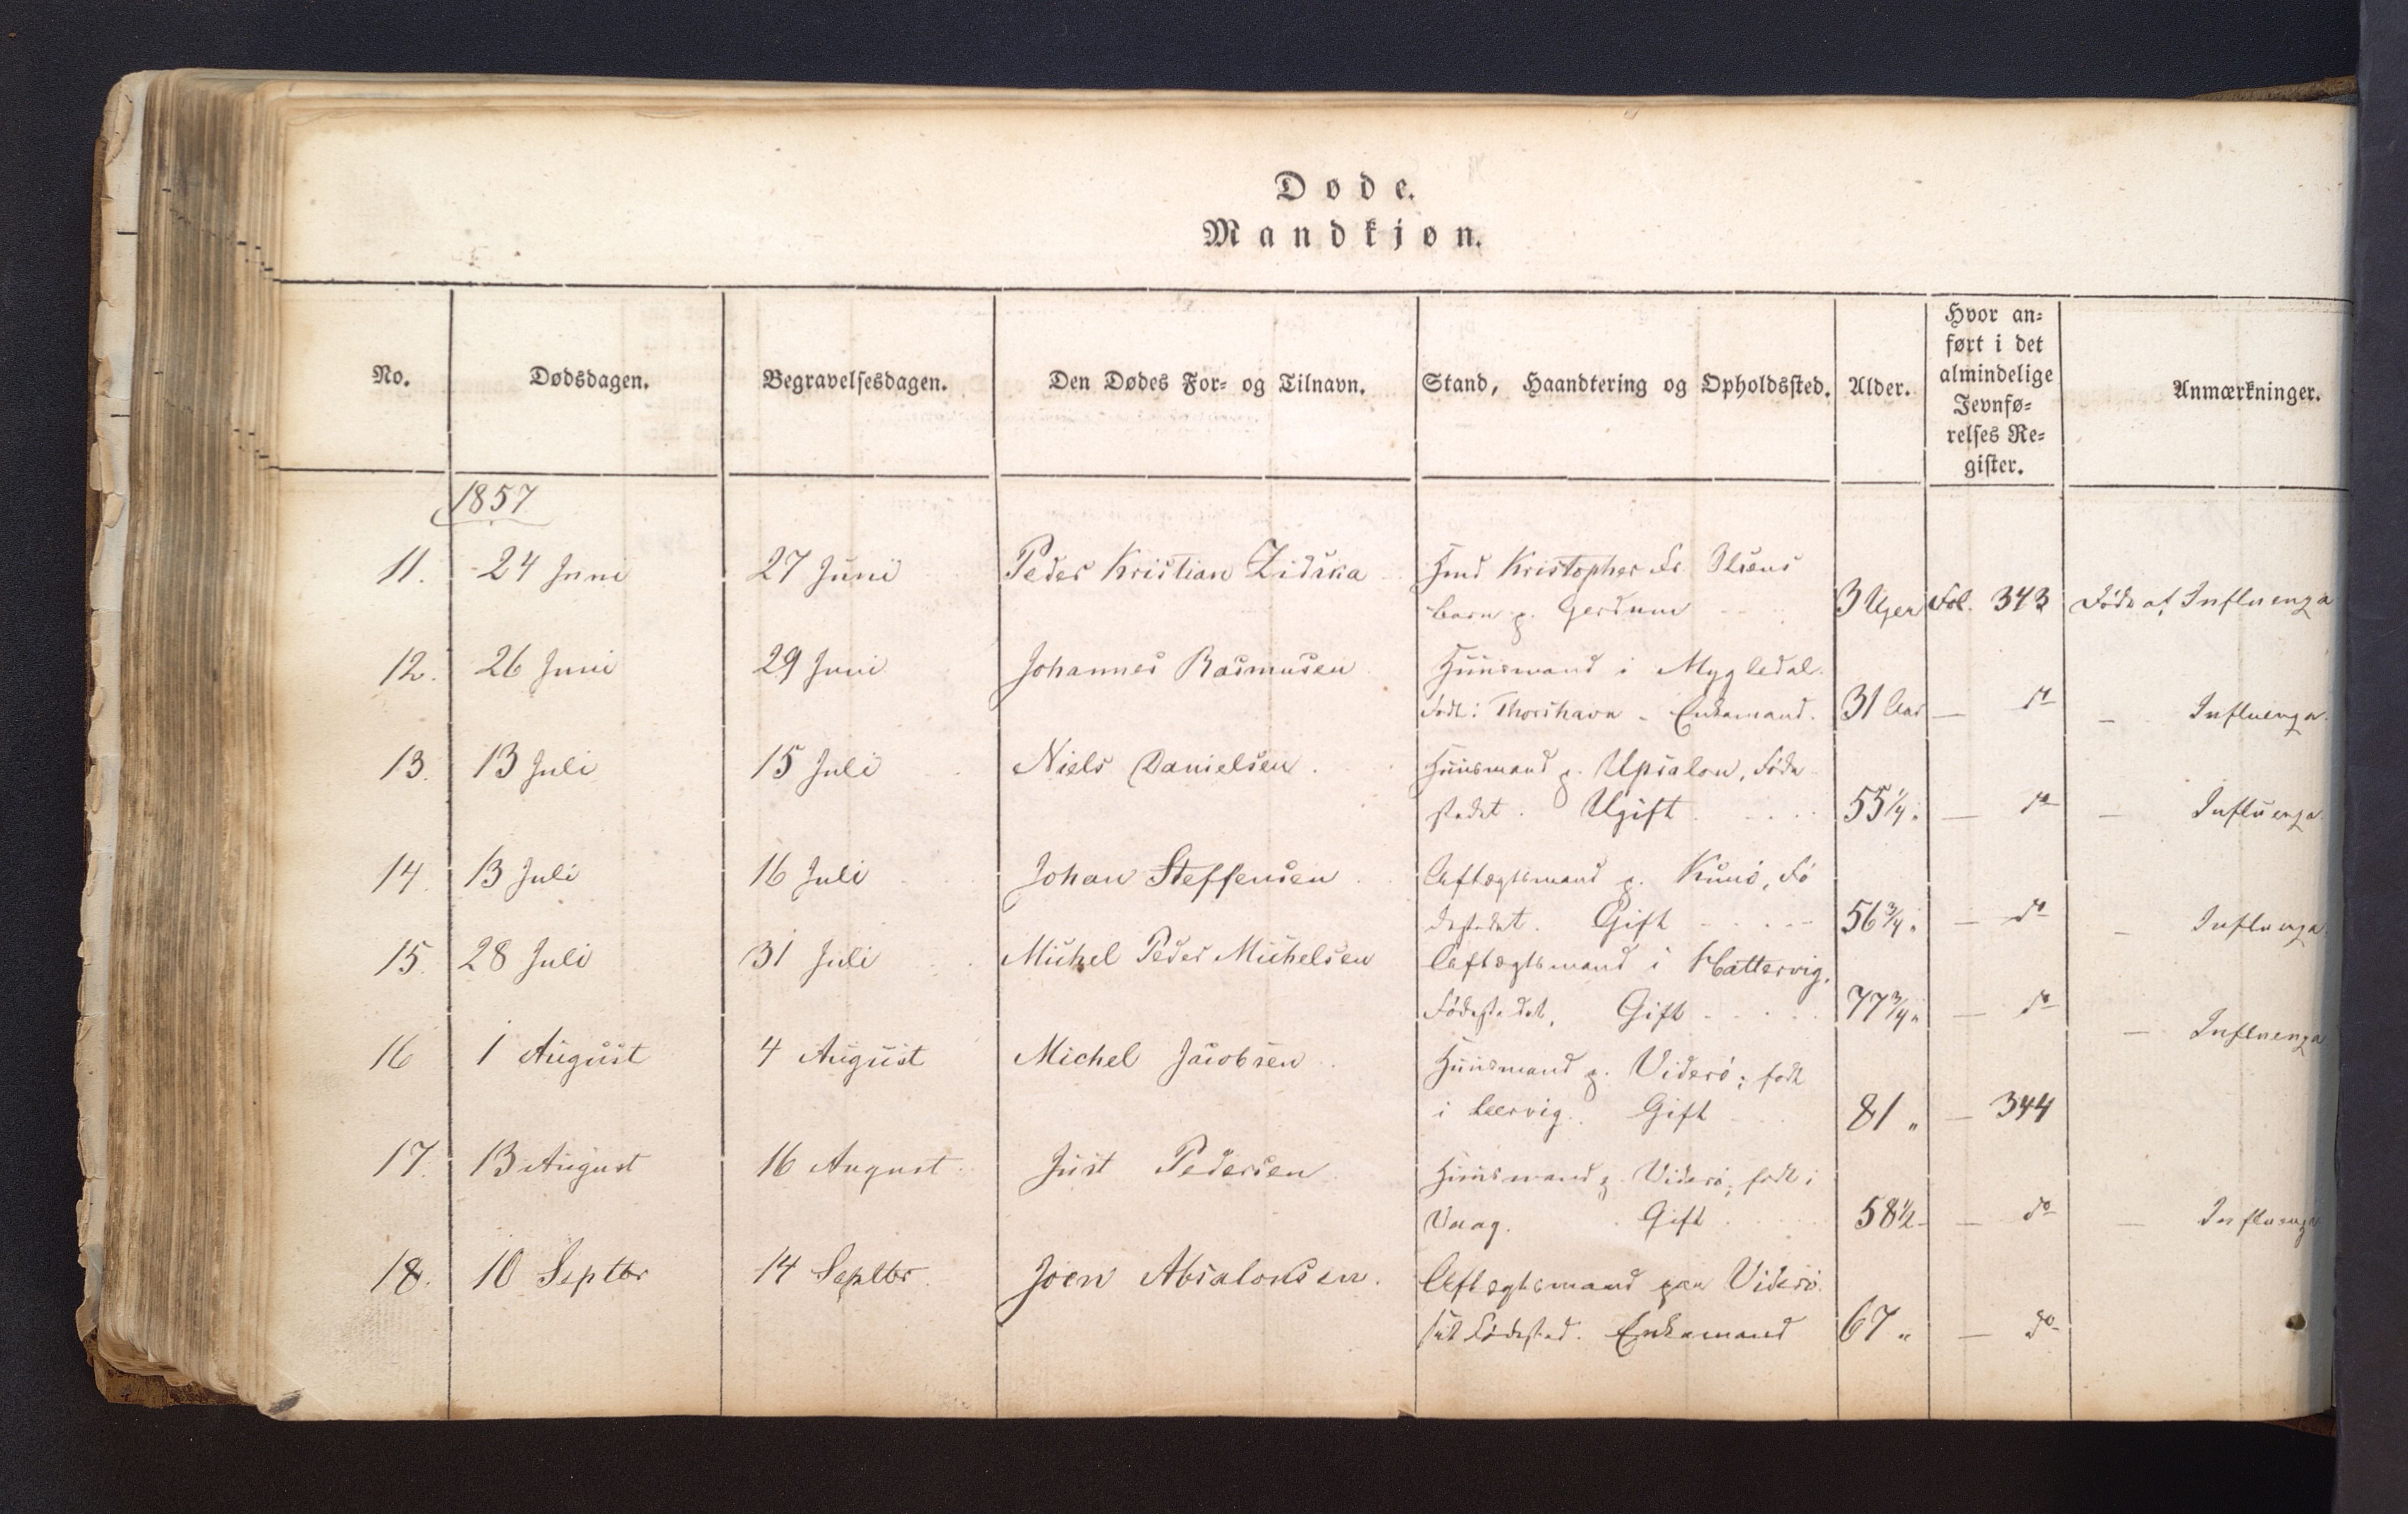 Døde.
Mandkjøn.
No. Dødsdagen. Begravelsesdagen. Den Dødes For- og Tilnavn. Stand, Haandtering og Opholdssted. Alder. Hvor an=
ført i det
almindelige
Jevnfø=
relses Re=
gister. Anmærkninger.
1857
11. 24 Juni 27 Juni Peder Kristian Ziska Hmd Kristopher Fr. Olsens
barn p. Gerdum 3 Uger Fol. 343 Døde af Influenza
12. 26 Juni 29 Juni Johannes Rasmusen Huusmand i Mygledal.
Født i Thorshavn - Enkemand. 31 Aar — do — Influenza.
13. 13 Juli 15 Juli Niels Danielsen. Huusmand p. Upsalon, Føde
stedet. Ugift 55 1/4 " — do — Influenza.
14. 13 Juli 16 Juli Johan Steffensen Aftægtsmand p. Kunø, Fø
destedet. Gift 56 3/4 " — do — Influenza.
15. 28 Juli 31 Juli Michel Peder Michelsen Aftægtsmand i Hattervig,
Fødestedet, Gift 77 3/4 " — do — Influenza
16 1 August 4 August Michel Jacobsen Huusmand p. Viderø; født
i Leervig. Gift 81 " — 344
17. 13 August 16 August. Just Pedersen Huusmand p. Viderø; født i
Vaag. Gift 58 1/2 - — do — Influenza
18. 10 Septbr 14 Septbr. Joen Absalonsen. Aftægtsmand paa Viderø.
sit Fødested. Enkemand 67 " — do